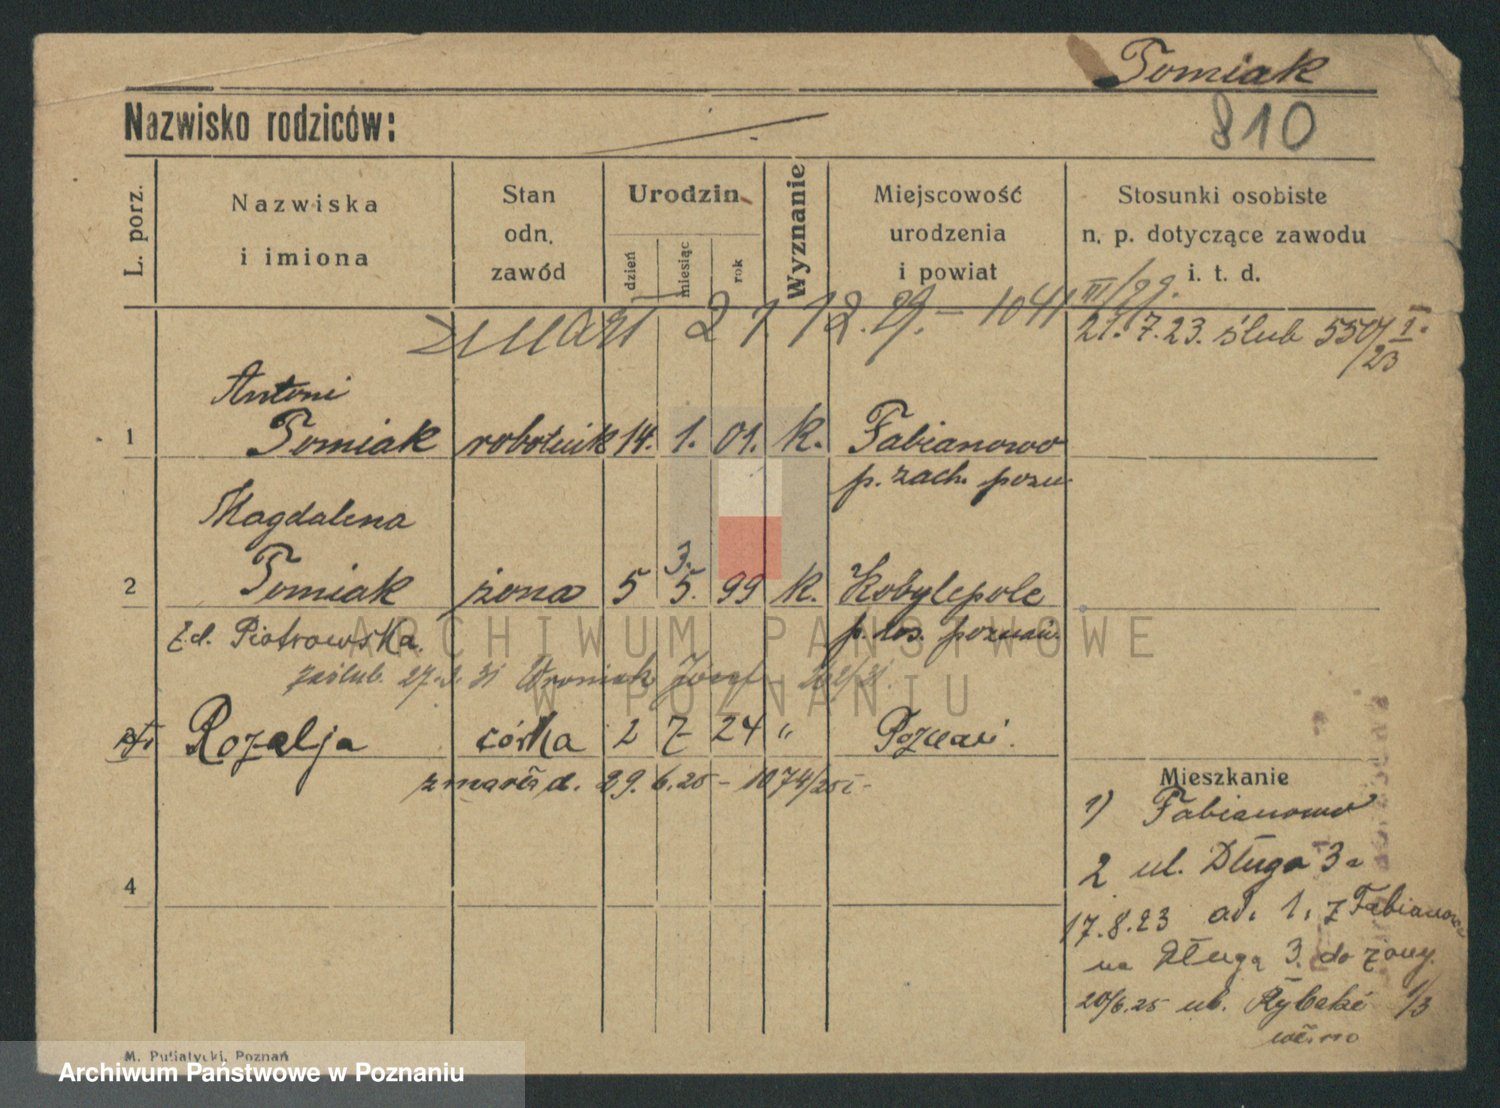 Tomiak
Nazwisko rodziców:
810
L. porz.
Nazwiska
i imiona
Stan
odn.
zawód
Urodzin
dzień
miesiąc
rok
Wyznanie
Miejscowość
urodzenia
i powiat
Stosunki osobiste
n. p. dotyczące zawodu
i. t. d.
zmarł 21.12.29. - 1041 III/29.
21.7.23. ślub 550/I.
/23
Antoni
1 Tomiak robotnik 14. 1. 01. k. Fabianowo
p. zach. pozn
Magdalena
3.
2 Tomiak żona 5 5. 99 k. Kobylepole
z d. Piotrowska. p. ws. poznań.
zaślub. 27.3.31 Woroniak Józef
Rozalja córka 2 7 24 " Poznań.
zmarła d. 29.6.25 - 1074/25 I -
4
Mieszkanie
1) Fabianowo
2 ul. Długa 3a
17.8.23 ad. 1, z Fabianowa
na Długą 3. do żony.
20/6.25 ul. Rybaki 1/3
M. Putiatycki, Poznań
ARCHIWUM PAŃSTWOWE
W POZNANIU
Archiwum Państwowe w Poznaniu